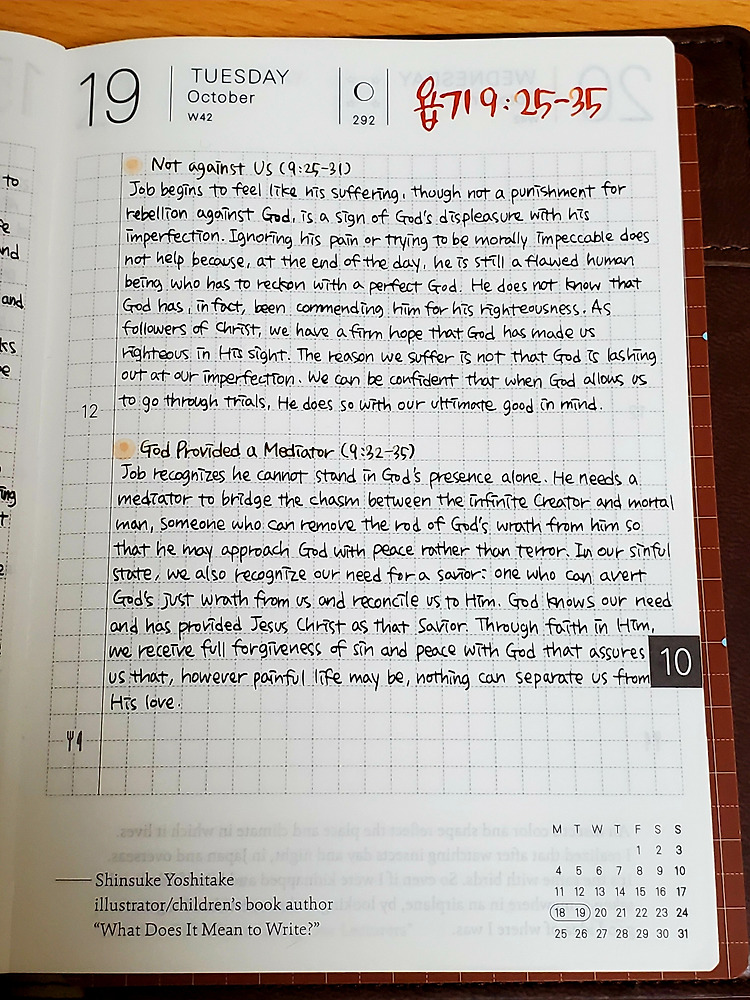 19
TUESDAY
October
W42
292
욥기 9:25-35
Not against Us (9:25-31)
Job begins to feel like his suffering, though not a punishment for
rebellion against God, is a sign of God's displeasure with his
imperfection. Ignoring his pain or trying to be morally impeccable does
not help because, at the end of the day, he is still a flawed human
being who has to reckon with a perfect God. He does not know that
God has, in fact, been commending him for his righteousness. As
followers of Christ, we have a firm hope that God has made us
righteous in His sight. The reason we suffer is not that God is lashing
out at our imperfection. We can be confident that when God allows us
12
to go through trials, He does so with our ultimate good in mind.
God Provided a Mediator (9:32-35)
Job recognizes he cannot stand in God's presence alone. He needs a
mediator to bridge the chasm between the infinite Creator and mortal
man, someone who can remove the rod of God's wrath from him so
that he may approach God with peace rather than terror. In our sinful
state, we also recognize our need for a savior: one who can avert
God's just wrath from us and reconcile us to Him. God knows our need
and has provided Jesus Christ as that Savior. Through faith in Him,
we receive full forgiveness of sin and peace with God that assures
10
us that, however painful life may be, nothing can separate us from
His love.
Shinsuke Yoshitake
illustrator/children's book author
"What Does It Mean to Write?"
M T W T F S S
1 2 3
4 5 6 7 8 9 10
11 12 13 14 15 16 17
18 19 20 21 22 23 24
25 26 27 28 29 30 31
to
and
and